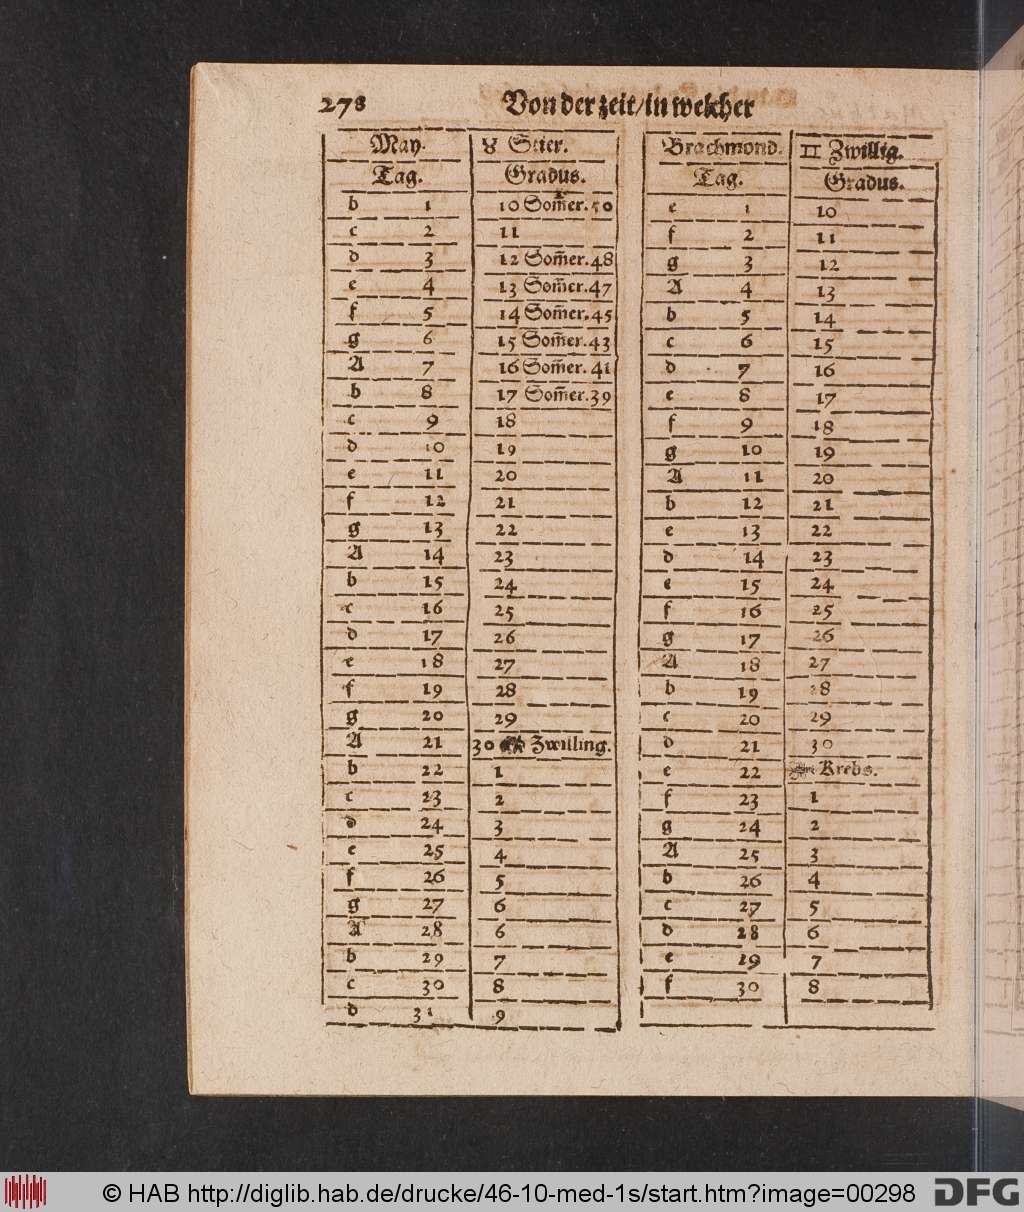 278 Von der zeit/in welcher
May. ♉ Stier.
Tag. Gradus.
b 1 10 Som̃er.50
c 2 11
d 3 12 Som̃er.48
e 4 13 Som̃er.47
f 5 14 Som̃er.45
g 6 15 Som̃er.43
A 7 16 Som̃er.41
b 8 17 Som̃er.39
c 9 18
d 10 19
e 11 20
f 12 21
g 13 22
A 14 23
b 15 24
c 16 25
d 17 26
e 18 27
f 19 28
g 20 29
A 21 30 Zwilling.
b 22 1
c 23 2
d 24 3
e 25 4
f 26 5
g 27 6
A 28 6
b 29 7
c 30 8
d 31 9
Brachmond. ♊ Zwillig.
Tag. Gradus.
e 1 10
f 2 11
g 3 12
A 4 13
b 5 14
c 6 15
d 7 16
e 8 17
f 9 18
g 10 19
A 11 20
b 12 21
e 13 22
d 14 23
e 15 24
f 16 25
g 17 26
A 18 27
b 19 28
c 20 29
d 21 30
e 22 Krebs.
f 23 1
g 24 2
A 25 3
b 26 4
c 27 5
d 28 6
e 29 7
f 30 8
© HAB http://diglib.hab.de/drucke/46-10-med-1s/start.htm?image=00298 DFG